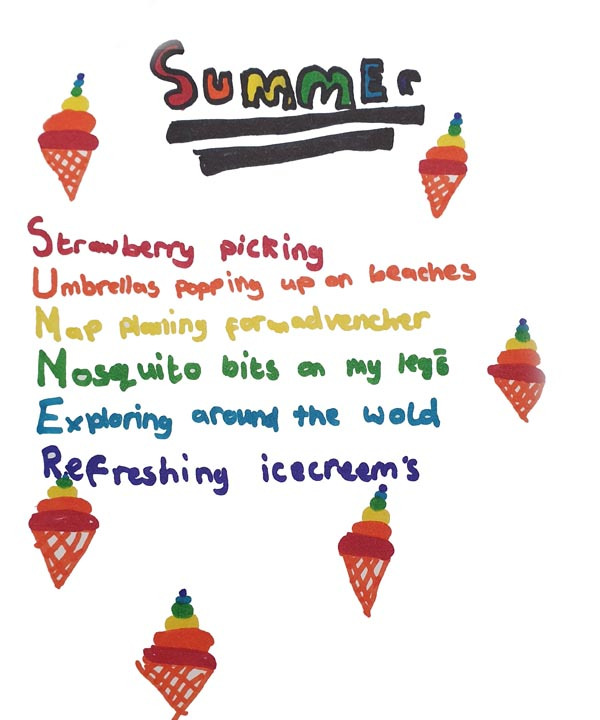 SUMMEr
Strawberry picking
Umbrellas popping up on beaches
Map planing formadvencher
Mosquito bits on my legs
Exploring around the wold
Refreshing icecreem's